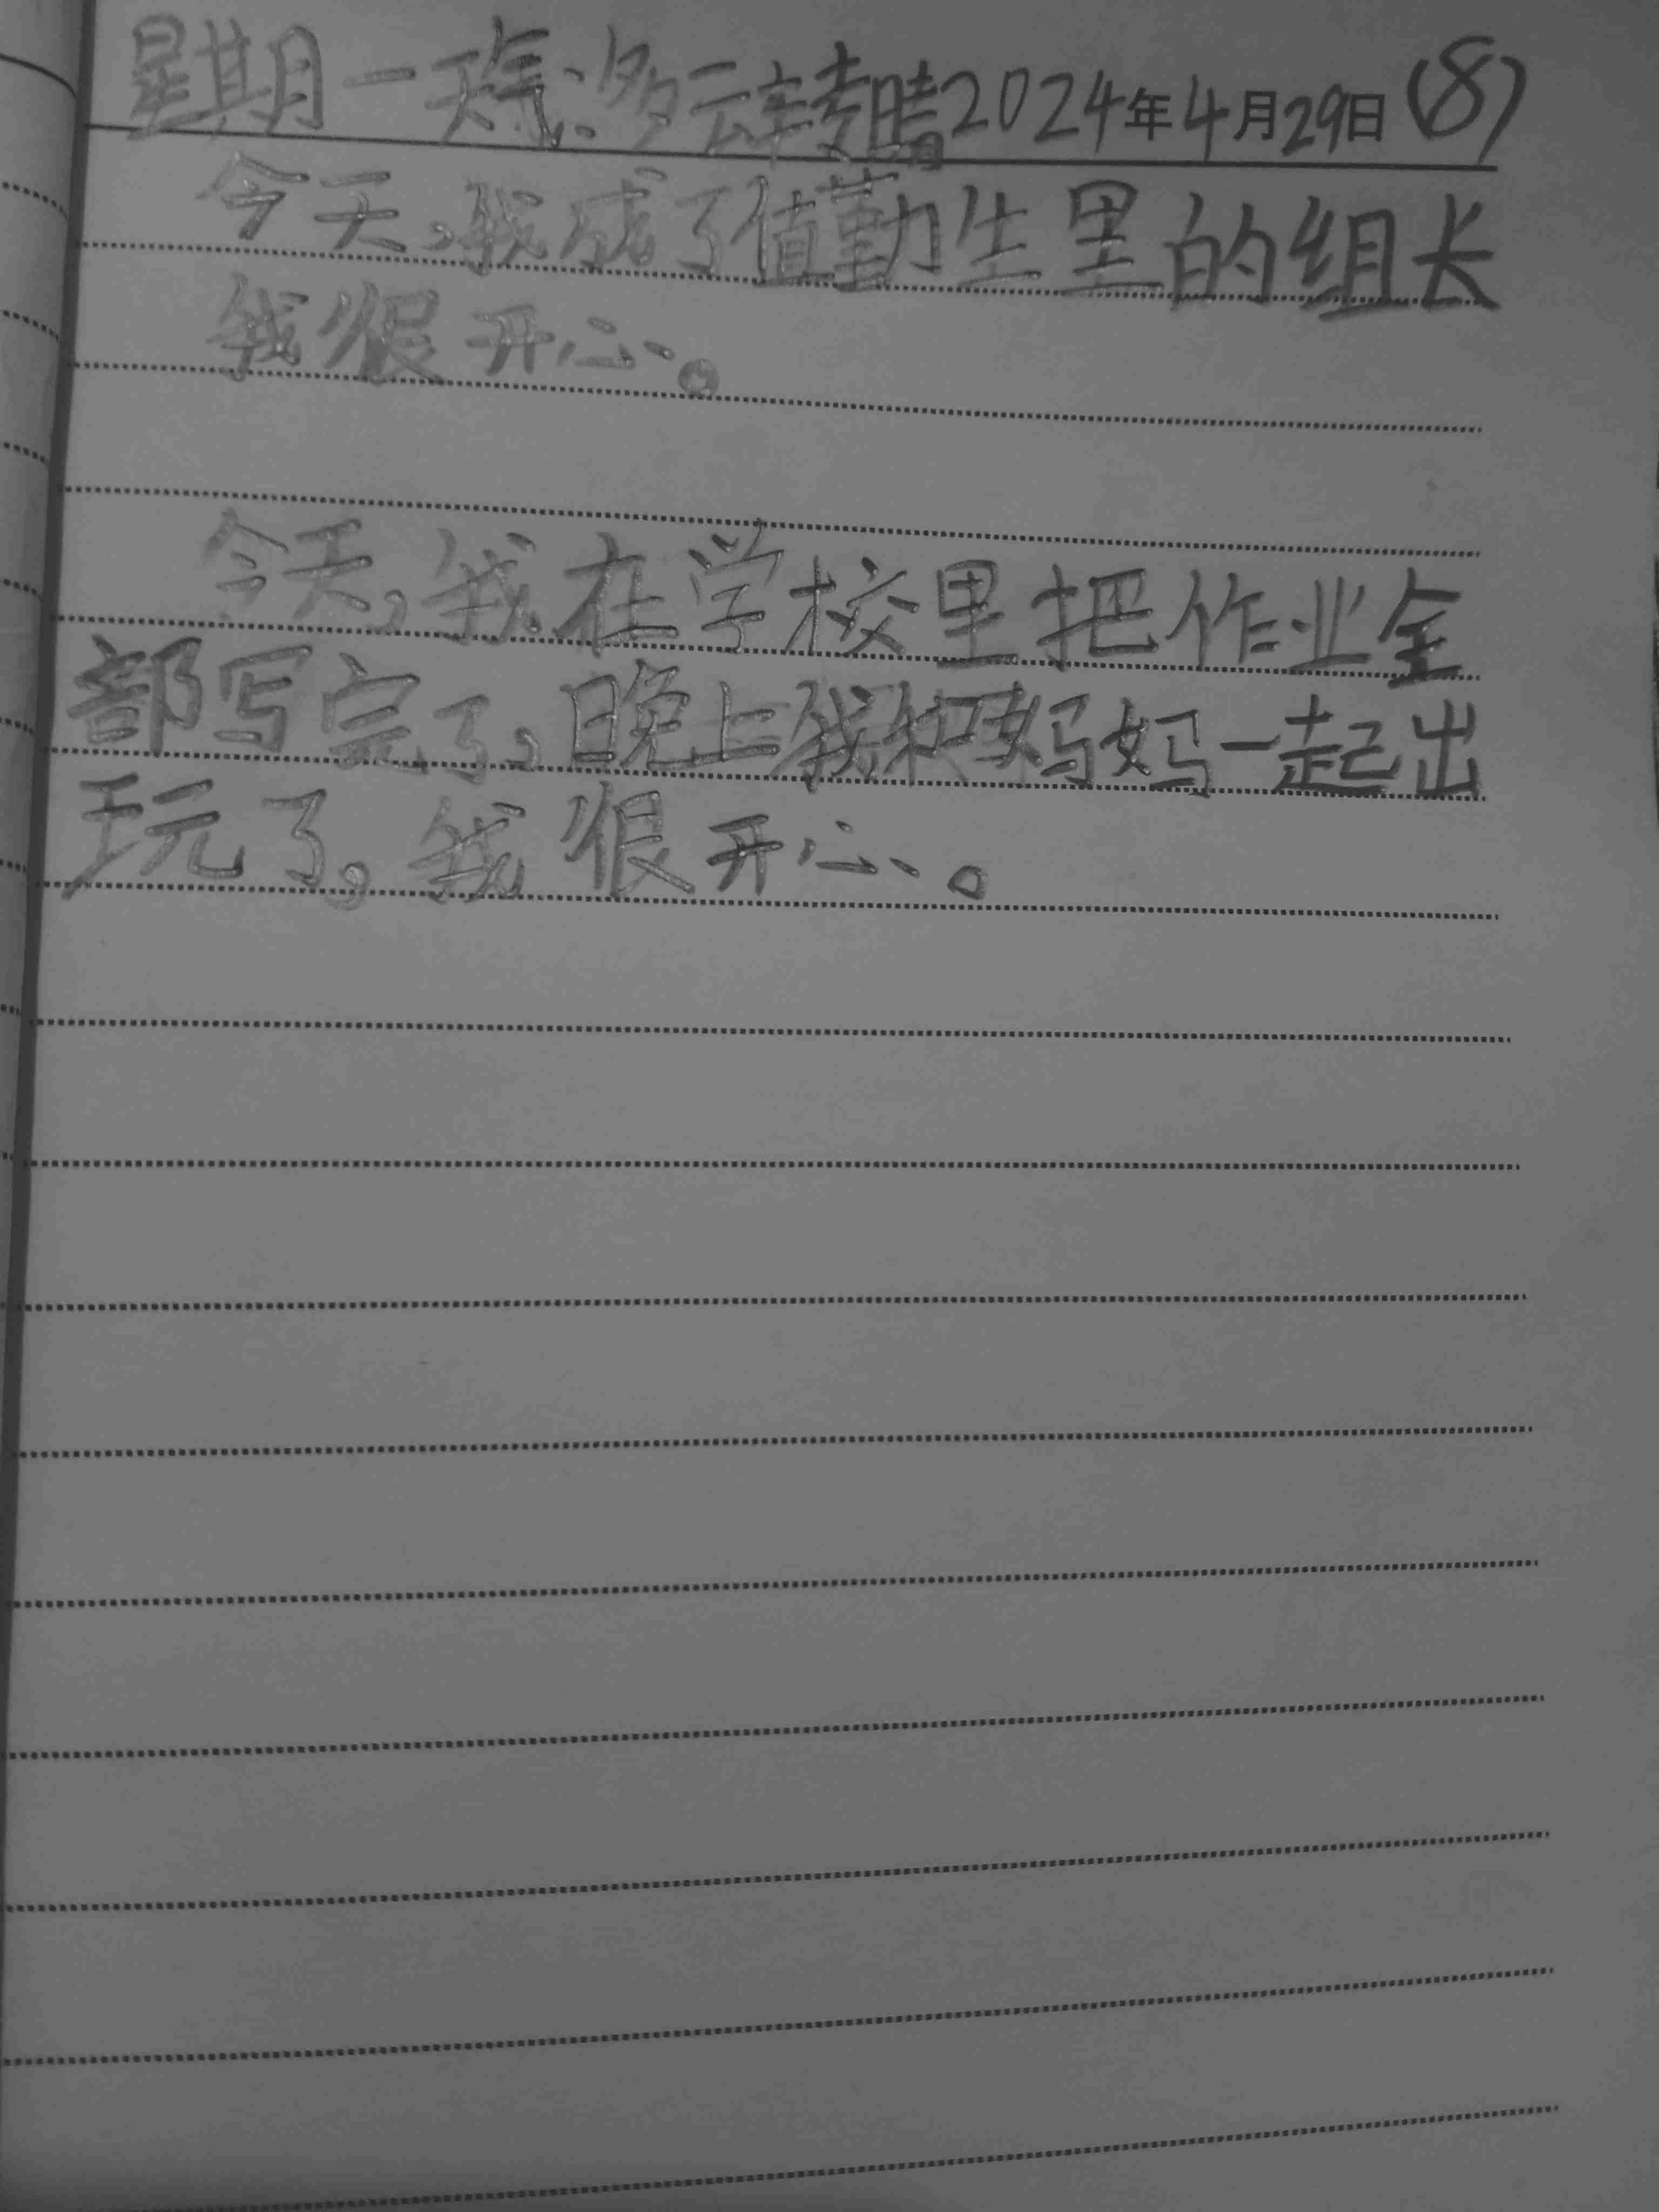 星期一天气:多云转晴2024年4月29日(8)
今天,我成了值勤生里的组长
我很开心。
今天,我在学校里把作业全
部写完了,晚上我和妈妈一起出
玩了。我很开心。